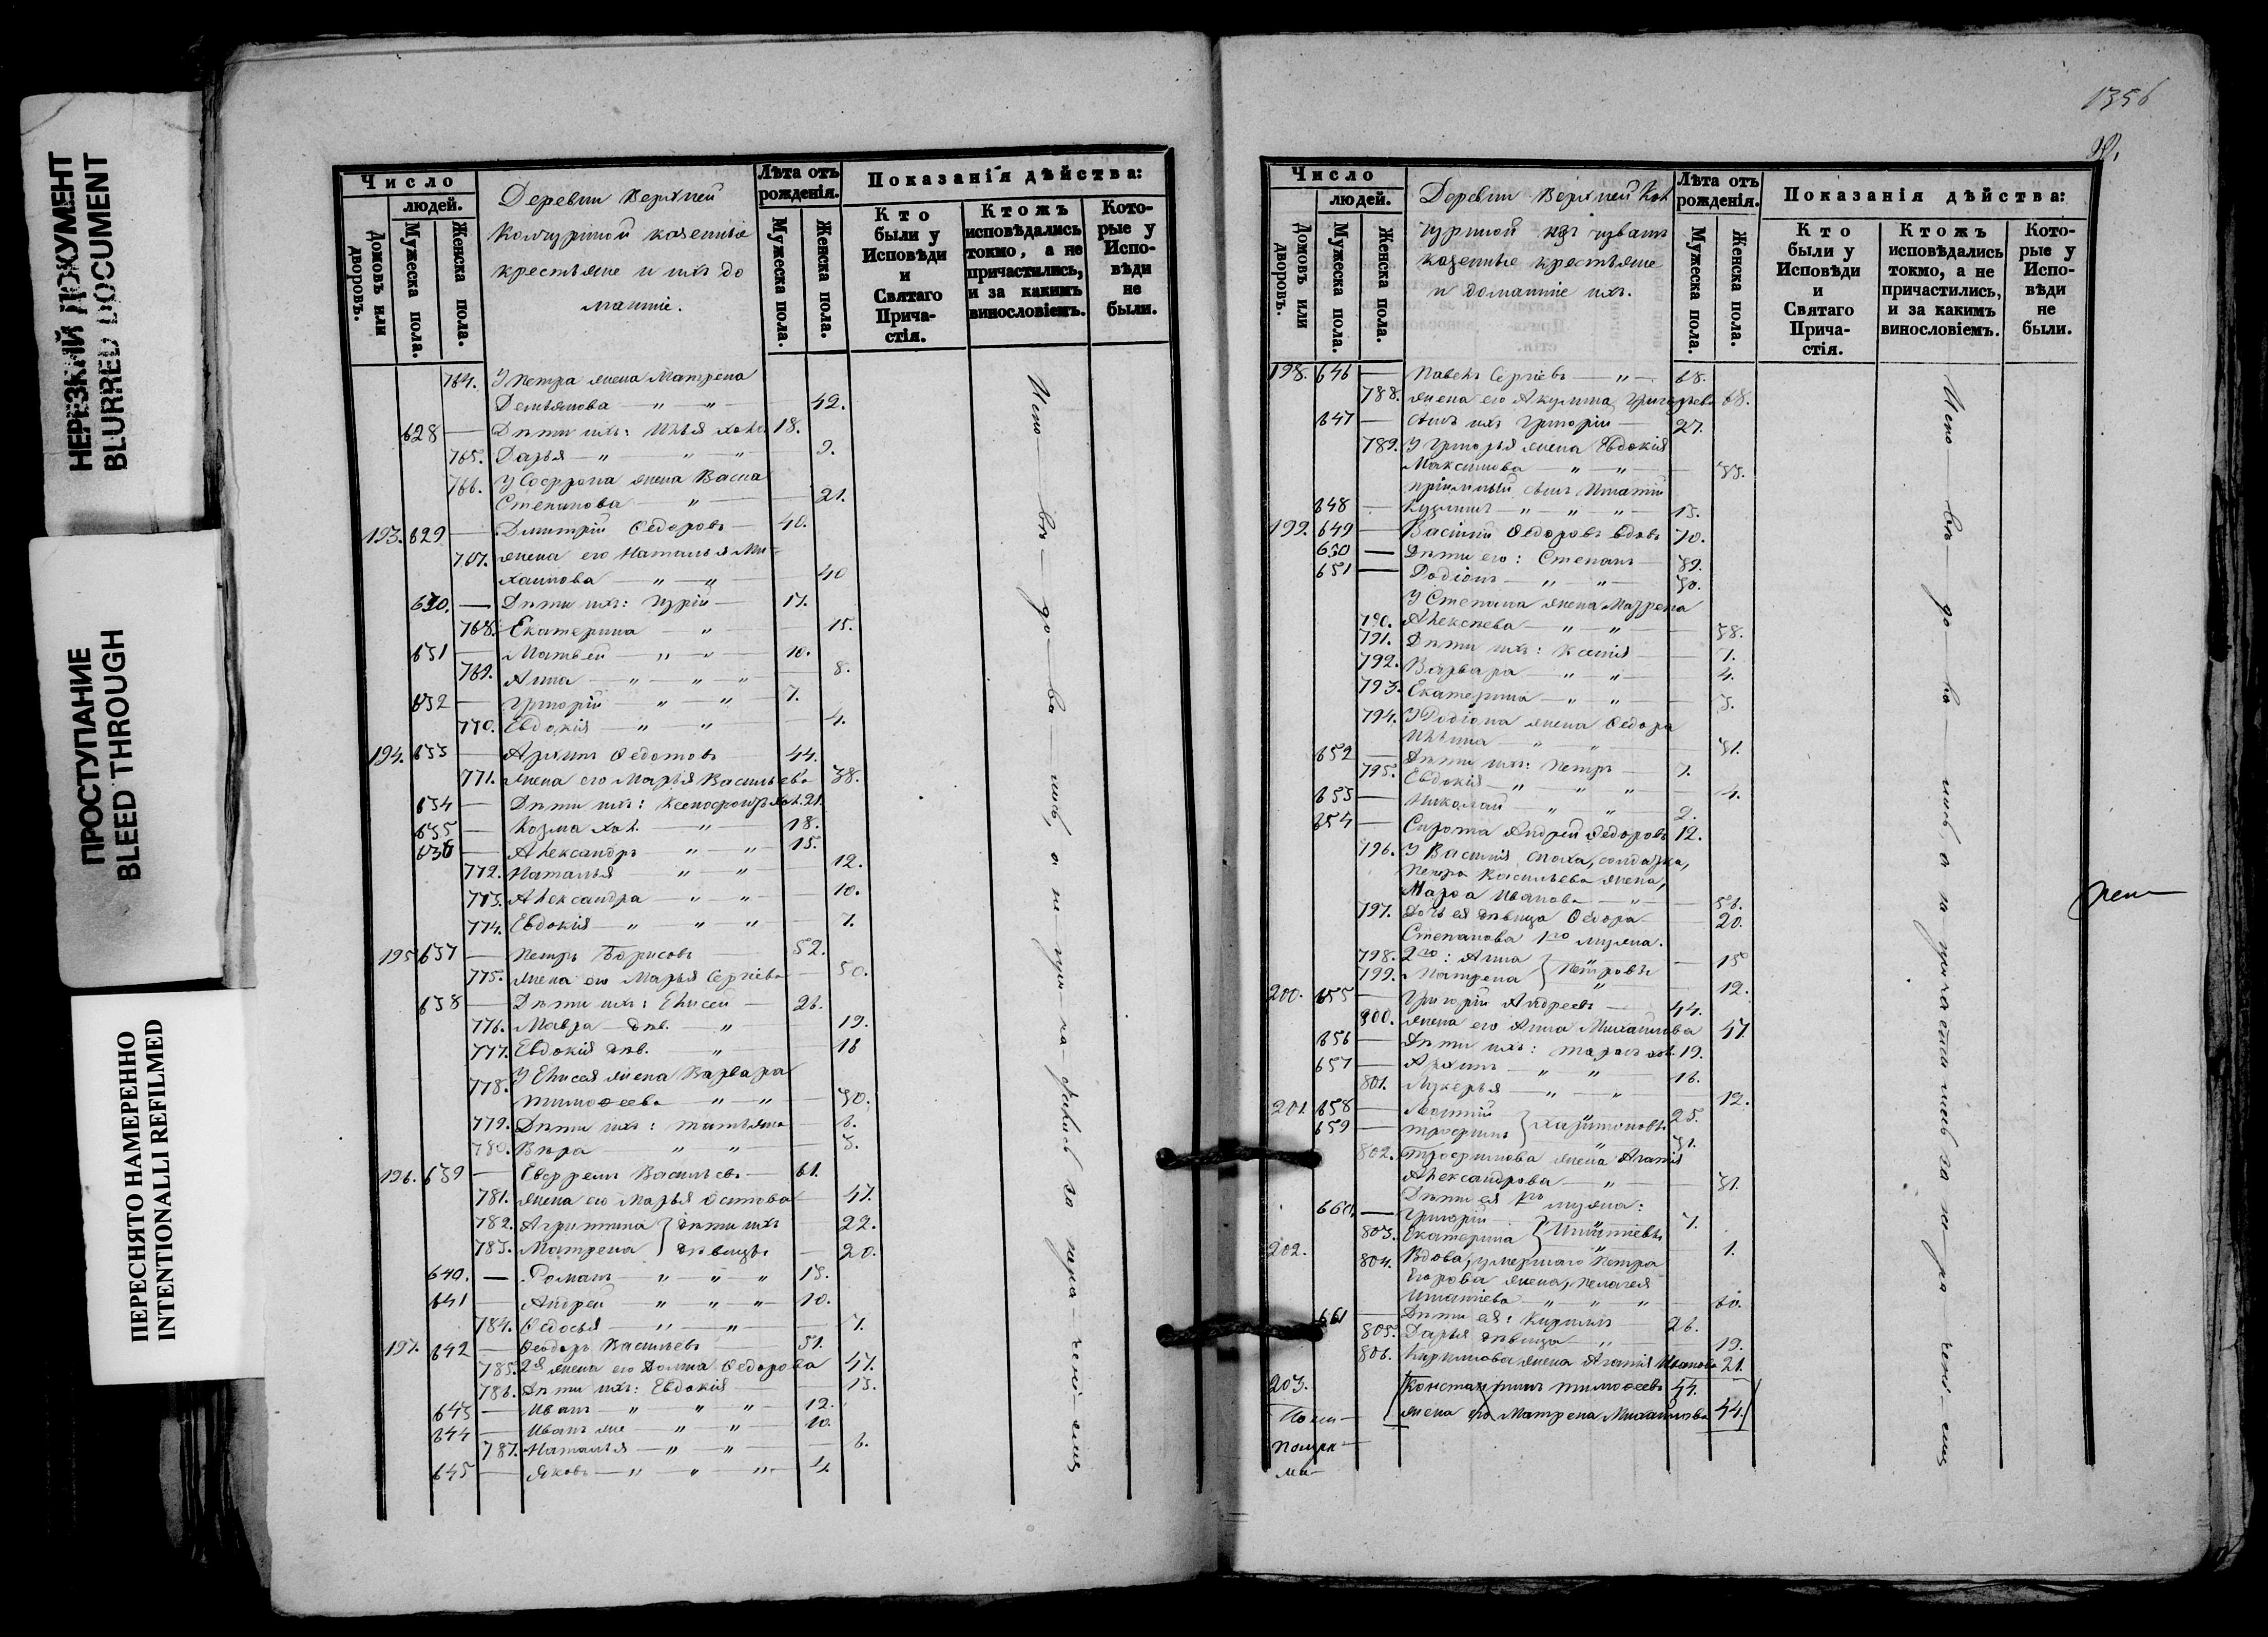 НЕРЕЗКИЙ ДОКУМЕНТ
BLURRED DOCUMENT
ПРОСТУПАНИЕ
BLEED THROUGH
ПЕРЕСНЯТО НАМЕРЕННО
INTENTIONALLI REFILMED
Число
людей.
Домовъ или дворовъ.
Мужеска пола.
Женска пола.
Деревни Верхней
казенные
крестьяне и ихъ до
машніе.
Лѣта отъ рожденія.
Мужеска пола.
Женска пола.
Показанія дѣйства:
Кто были у Исповѣди и Святаго Прича-стія.
Ктожъ исповѣдались токмо, а не причастились, и за какимъ винословіемъ.
Кото-рые у Испо-вѣди не были.
764. У Петра жена Матрена
Демьянова — " — " — 42.
628 — Дѣти ихъ: Илья хол. 18.
765. Дарья — " — " — " 9.
766. У жена Васса
Степанова — " — 21.
193. 629 — Дмитрій Ѳедоровъ — 40.
767. жена его Наталья Ми-
хаилова — " — " — 40
630. — Дѣти ихъ: Гурій — 17.
768. Екатерина — " — 15.
631 — Матвей — " — " — 10.
769. Анна — " — " — " 8.
632 — Григорій — " — " 7.
770. Евдокія — " — " — 4.
194. 633 — Архипъ Ѳедотовъ — 44.
771. жена его Марья Васильева 38.
634 — Дѣти ихъ: хол. 21.
635 — Козма хол. — " — 18.
636 — Александръ — " — " — 15.
772. Наталья — " — " — 12.
773. Александра — " — " — 10.
774. Евдокія — " — " — " — 7.
195 637 — Петръ Борисовъ — 52.
775. жена его Марья Сергіева — 50.
638 — Дѣти ихъ: Елисей — 26.
776. Мавра — дѣв. — " — 19.
777. Евдокія дѣв. — " — 18
778. У Елисея жена Варвара
Тимоѳеева — " — " — 30.
779. Дѣти ихъ: Татьяна — 6.
780. Вѣра — " — " — 3.
196. 639 — Евфремъ Васильевъ — 61.
781. жена его Марья Осипова — 47.
782. Агриппина } дѣти ихъ — 22.
783. Матрена } дѣвицы — 20.
640. — Романъ — " — " — " 13.
641 — Андрей — " — " — " — 10.
784. Ѳедосья — " — " — 7.
197. 642 — Ѳеодоръ Васильевъ 51.
785. 2я жена его Домна Ѳедорова 47.
786. Дѣти ихъ: Евдокія — 13.
643 — Иванъ — " — " — " — 12.
644 — Иванъ же — " — " — 10.
787. Наталья — " — " — 6.
645 — Яковъ — " — " — " — 4.
Испо — вѣ — до — ва — лись, а не при —
1356
Число
людей.
Домовъ или дворовъ.
Мужеска пола.
Женска пола.
Деревни Верхней Кол
изъ чувашъ
казенные крестьяне
и домашніе ихъ.
Лѣта отъ рожденія.
Мужеска пола.
Женска пола.
Показанія дѣйства:
Кто были у Исповѣди и Святаго Прича-стія.
Ктожъ исповѣдались токмо, а не причастились, и за какимъ винословіемъ.
Кото-рые у Испо-вѣди не были.
198. 646 — Павелъ Сергіевъ — " — 68.
788. жена его Акулина Григорьева 68.
647 — Сынъ ихъ Григорій — 27.
789. У Григорья жена Евдокія
Максимова — " — " — 33.
пріемный сынъ Игнатій
648 — Кузминъ — " — " — " — 13.
199. 649 — Василій Ѳедоровъ вдовъ 70.
650 — Дѣти его: Степанъ — 39.
651 — Родіонъ — " — " — 30.
У Степана жена Мавра
790. Алексѣева — " — " — 38.
791. Дѣти ихъ: Ксенія — 7.
792. Варвара — " — " — 4.
793. Екатерина — " — " — 3.
794. У Родіона жена Ѳедора
Ильина — " — " — 31.
652 — Дѣти ихъ: Петръ — 7.
795. Евдокія — " — " — " — 4.
653 — Николай — " — " 2.
654 — Сирота Андрей Ѳедоровъ 12.
796. У Василія сноха, солдатка,
Петра Васильева жена,
Марѳа Иванова — " — 56.
797. Дочь ея дѣвица Ѳедора — 20.
Степанова 1го мужа.
798. 2го: Анна } Петровы — 15
799. Матрена } " 12.
200. 655 — Григорій Андреевъ — 44.
800. жена его Анна Михайлова 47
656 — Дѣти ихъ: Тарасъ хол. 19.
657 — Архипъ — " — " — 16.
801. Лукерья — " — " — 12.
201. 658 — } Харитоновы 25.
659 — Трофимъ } " 31.
802. Трофимова жена Агафія
Александрова — " — 31.
Дѣти ея 1го мужа:
660. — Григорій } Игнатіевы 7.
803. Екатерина } " 1.
202. 804. Вдова, умершаго Петра
Егорова жена, Пелагея
Игнатіева — " — " — " — 60.
661 — Дѣти ея: Кирилъ — 26.
805. Дарья дѣвица — " — 19.
806. Кирилова жена Агафія Иванова 21.
203. Константинъ Тимоѳеевъ 44.
жена его Матрена Михайлова 44.
Испо — вѣ — до — ва — лись, а